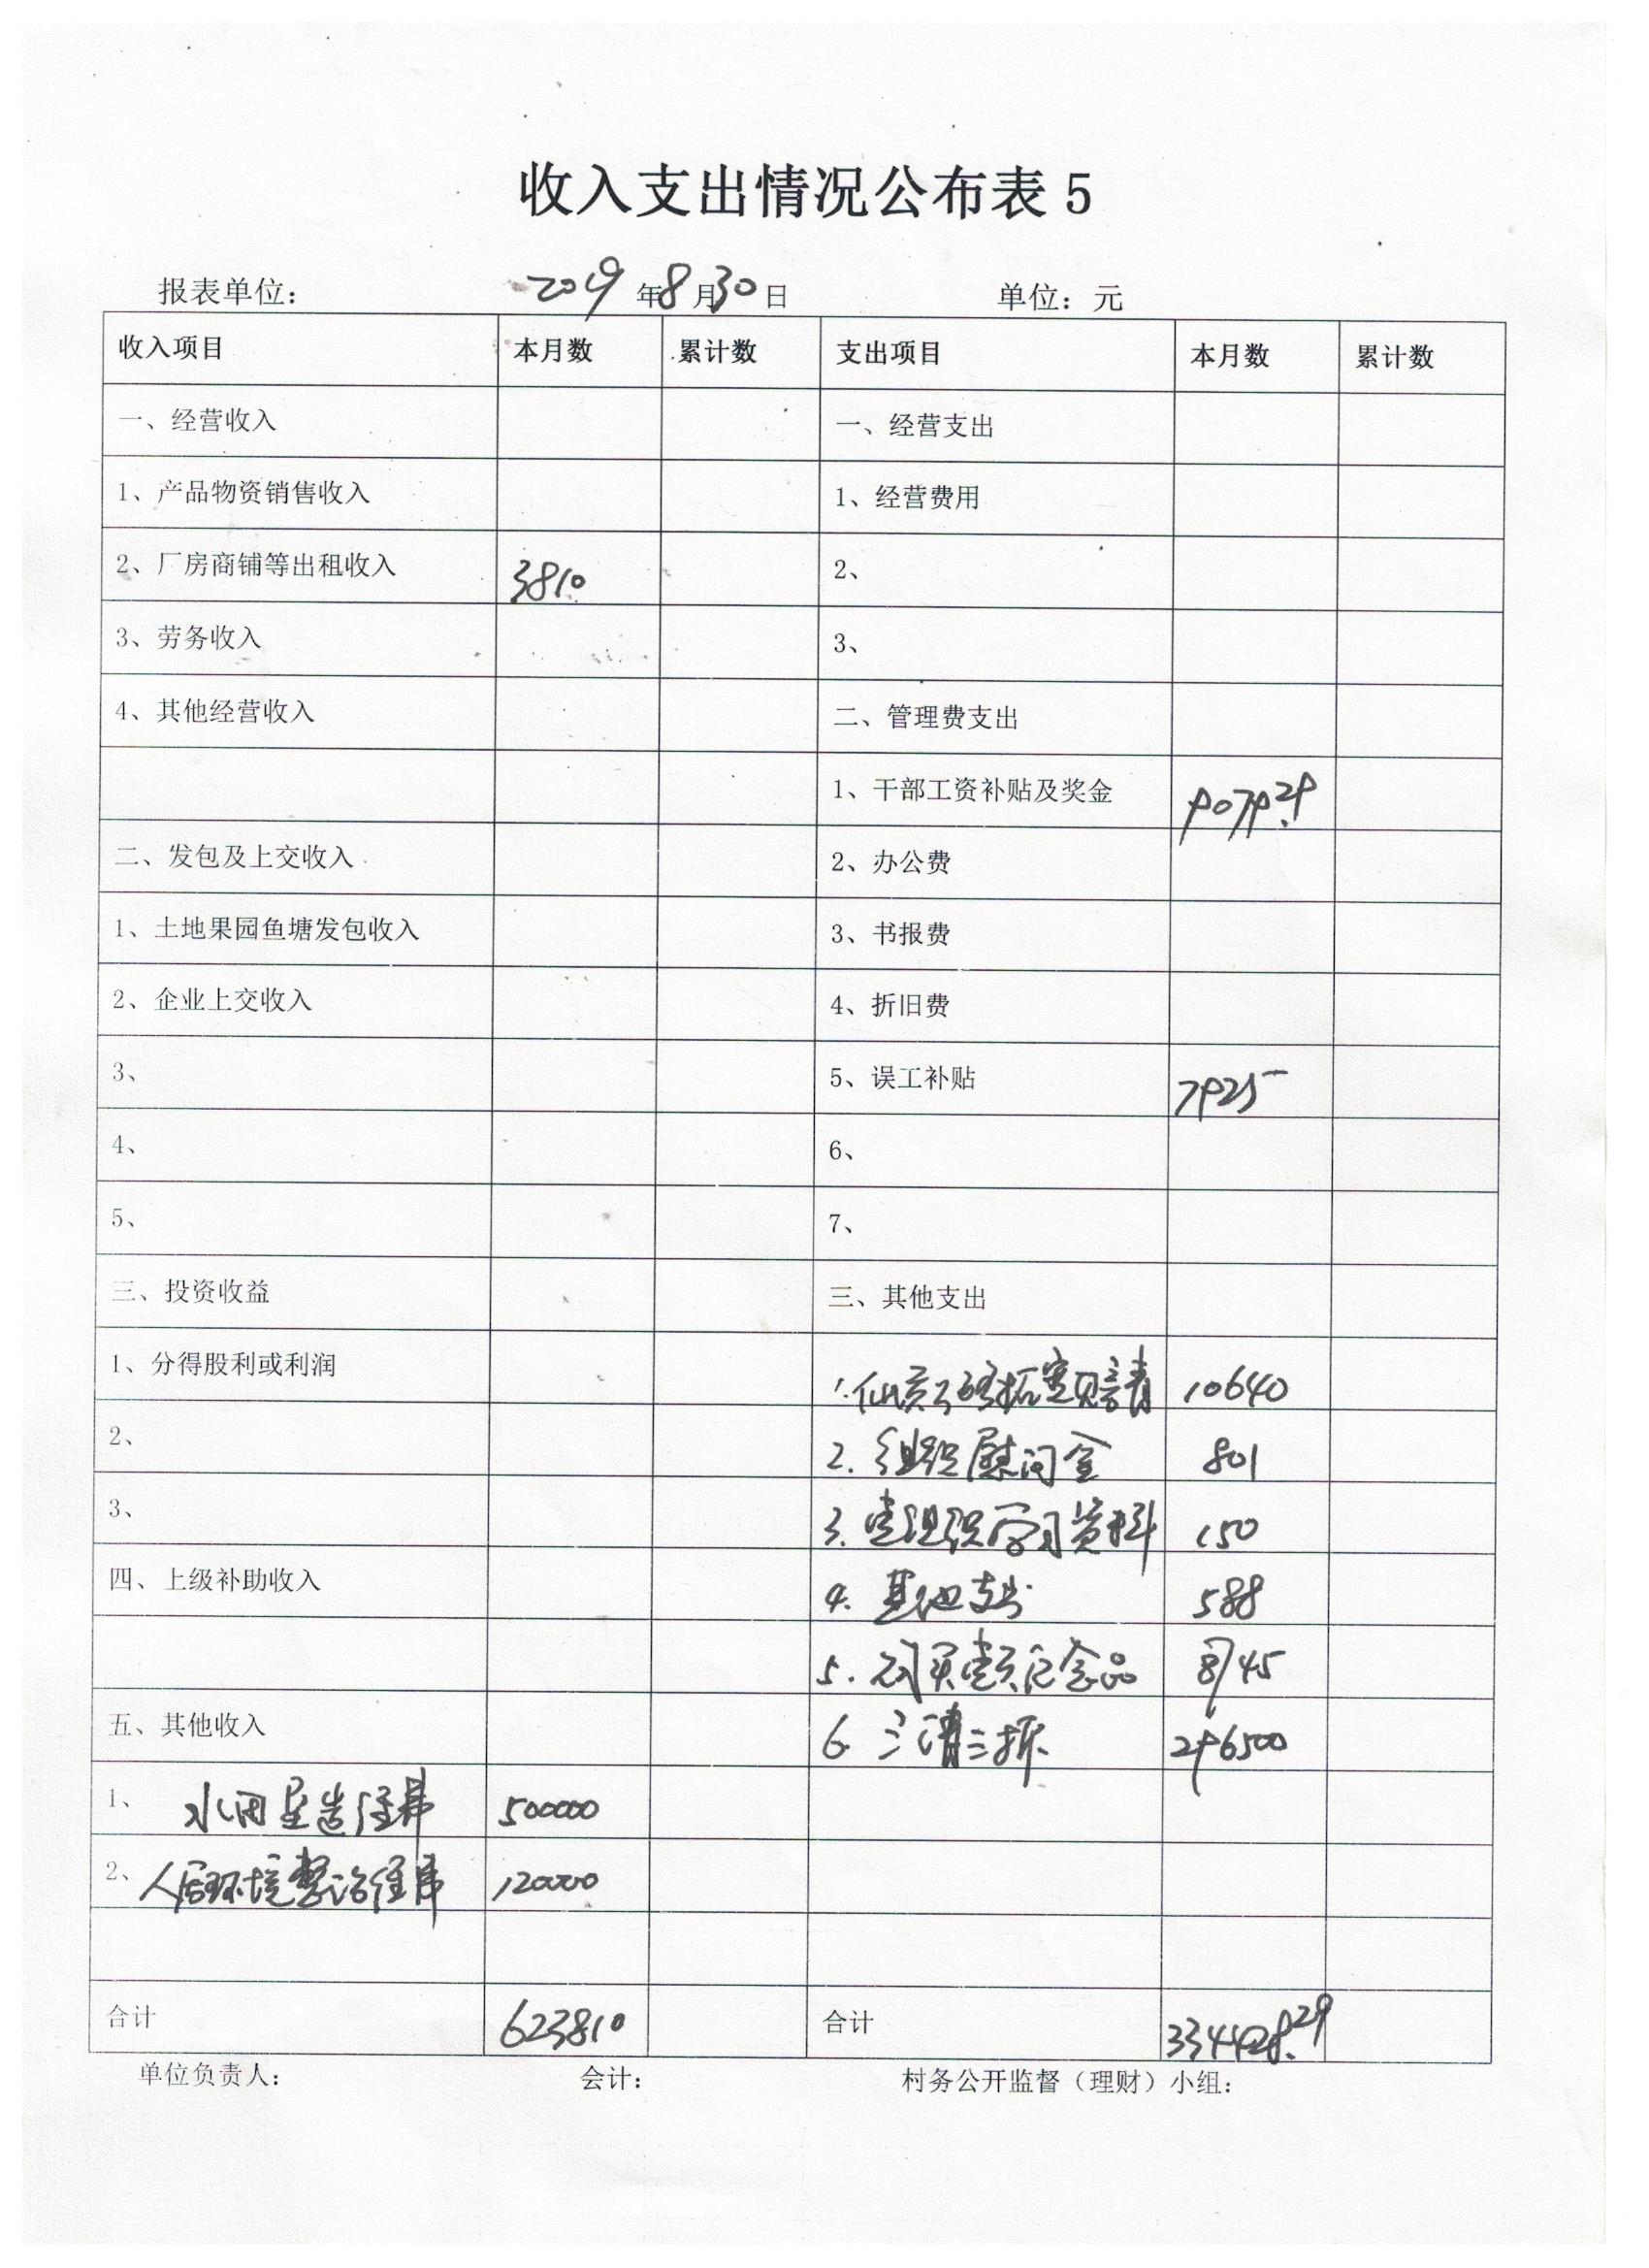 收入支出情况公布表5
报表单位： 2019年8月30日 单位：元
收入项目 本月数 累计数 支出项目 本月数 累计数
一、经营收入 一、经营支出
1、产品物资销售收入 1、经营费用
2、厂房商铺等出租收入 3810 2、
3、劳务收入 3、
4、其他经营收入 二、管理费支出
1、干部工资补贴及奖金 9079.29
二、发包及上交收入 2、办公费
1、土地果园鱼塘发包收入 3、书报费
2、企业上交收入 4、折旧费
3、 5、误工补贴 7925
4、 6、
5、 7、
三、投资收益 三、其他支出
1、分得股利或利润 1.路拓宽赔青 10640
2、 2.组织慰问金 801
3、 3.党组织学习资料 150
四、上级补助收入 4.其他支出 588
5.购买党员纪念品 8745
五、其他收入 6.三清三拆 296500
1、水田垦造经费 500000
2、人居环境整治经费 120000
合计 623810 合计 334428.29
单位负责人： 会计： 村务公开监督（理财）小组：